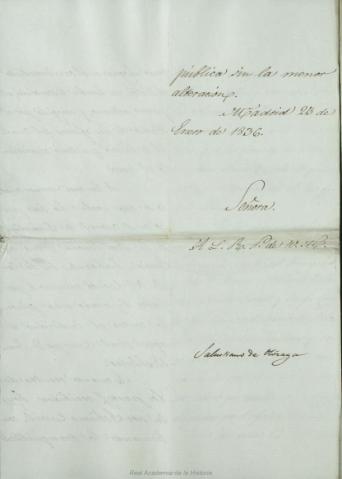 pública sin la menor
alteración.
Madrid 23 de
Enero de 1836.
Señora.
A L. R. P. de V. M.
Salustiano de Olozaga
Real Academia de la Historia